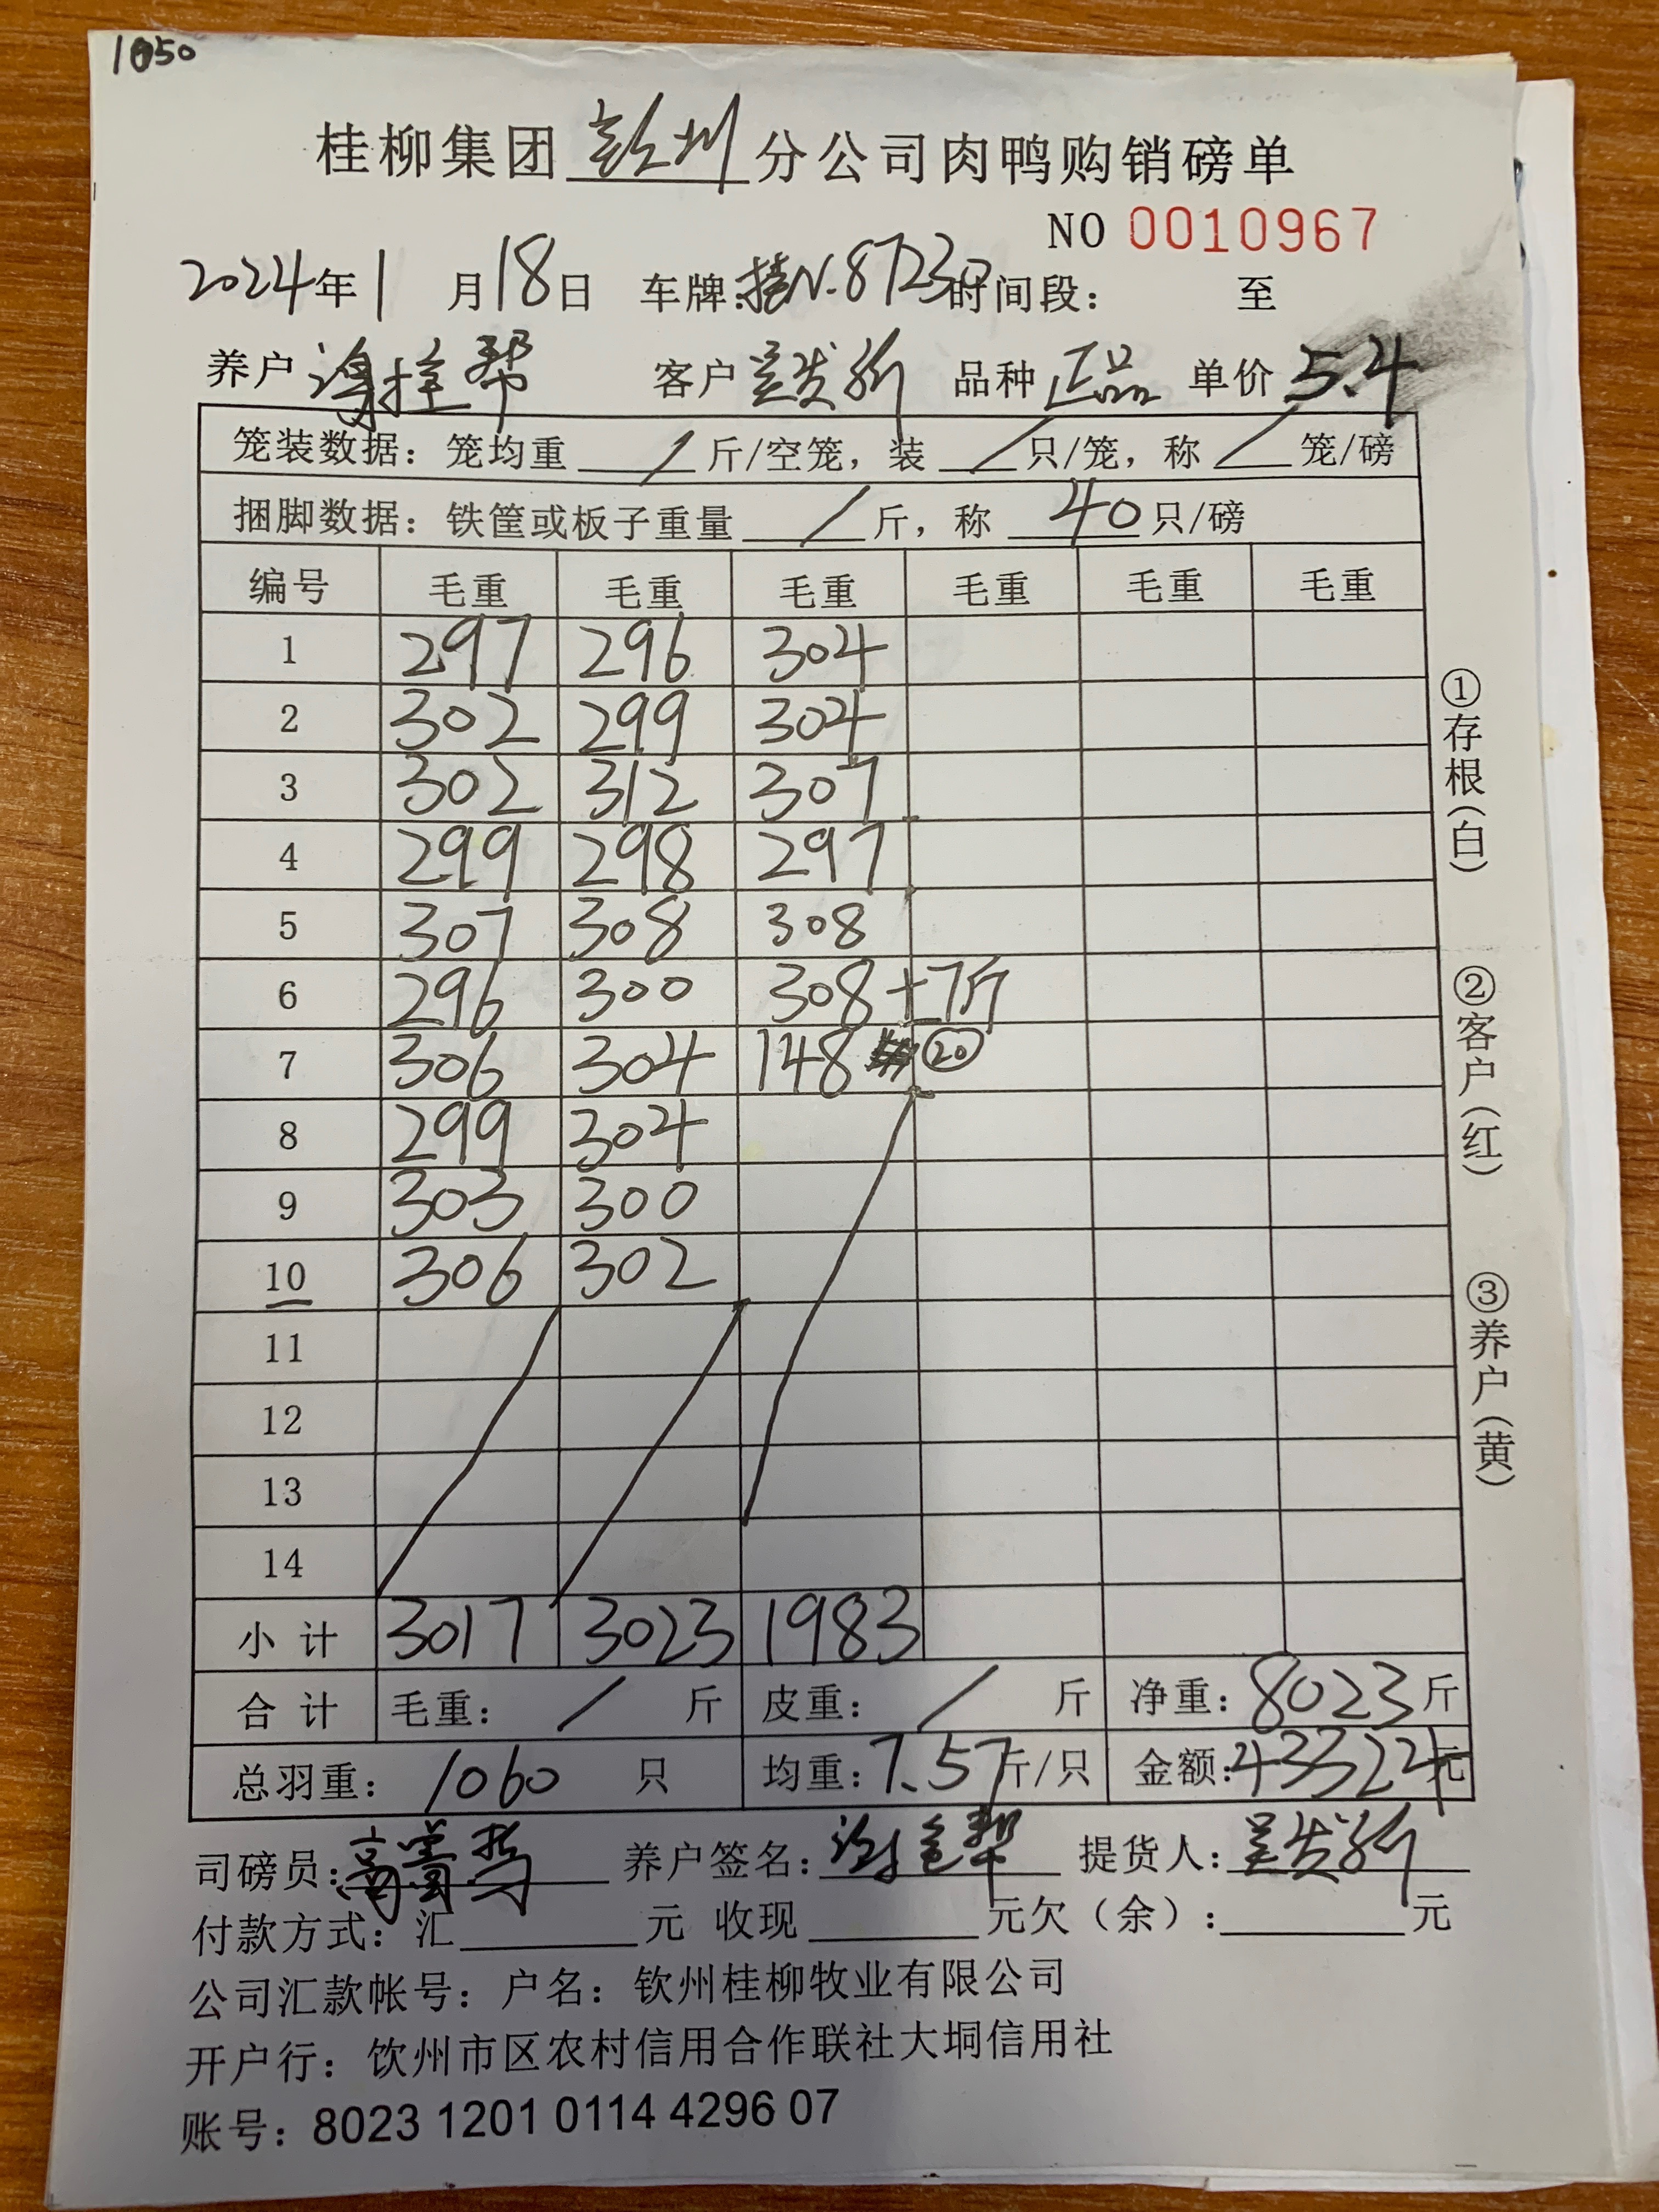 1050
桂柳集团 钦州 分公司肉鸭购销磅单
NO 0010967
2024年1月18日 车牌:桂N·8723 时间段: 至
养户 客户 吴发新 品种 正品 单价 5.4
笼装数据: 笼均重 / 斤/空笼, 装 / 只/笼, 称 / 笼/磅
捆脚数据: 铁筐或板子重量 / 斤, 称 40 只/磅
编号 毛重 毛重 毛重 毛重 毛重 毛重
1 297 296 304
2 302 299 304
3 302 312 307
4 299 298 297
5 307 308 308
6 296 300 308+7斤
7 306 304 148 ⑳
8 299 304
9 303 300
10 306 302
11
12
13
14
小计 3017 3023 1983
合计 毛重: / 斤 皮重: / 斤 净重: 8023 斤
总羽重: 1060 只 均重: 7.57 斤/只 金额: 43324元
司磅员: 养户签名: 提货人: 吴发新
付款方式: 汇 元 收现 元欠(余): 元
公司汇款帐号: 户名: 钦州桂柳牧业有限公司
开户行: 钦州市区农村信用合作联社大垌信用社
账号: 8023 1201 0114 4296 07
①存根(白)
②客户(红)
③养户(黄)